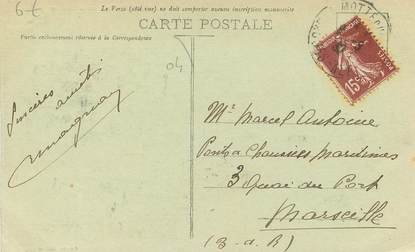 6 €
Le Verso (côté vue) ne doit comporter aucune inscription manuscrite
CARTE POSTALE
Partie exclusivement réservée à la Correspondance
04
Sincères
amitiés
Mr Marcel Antoine
Ponts & Chaussées Maritimes
3 Quai du Port
Marseille
(B-d-R)
15c